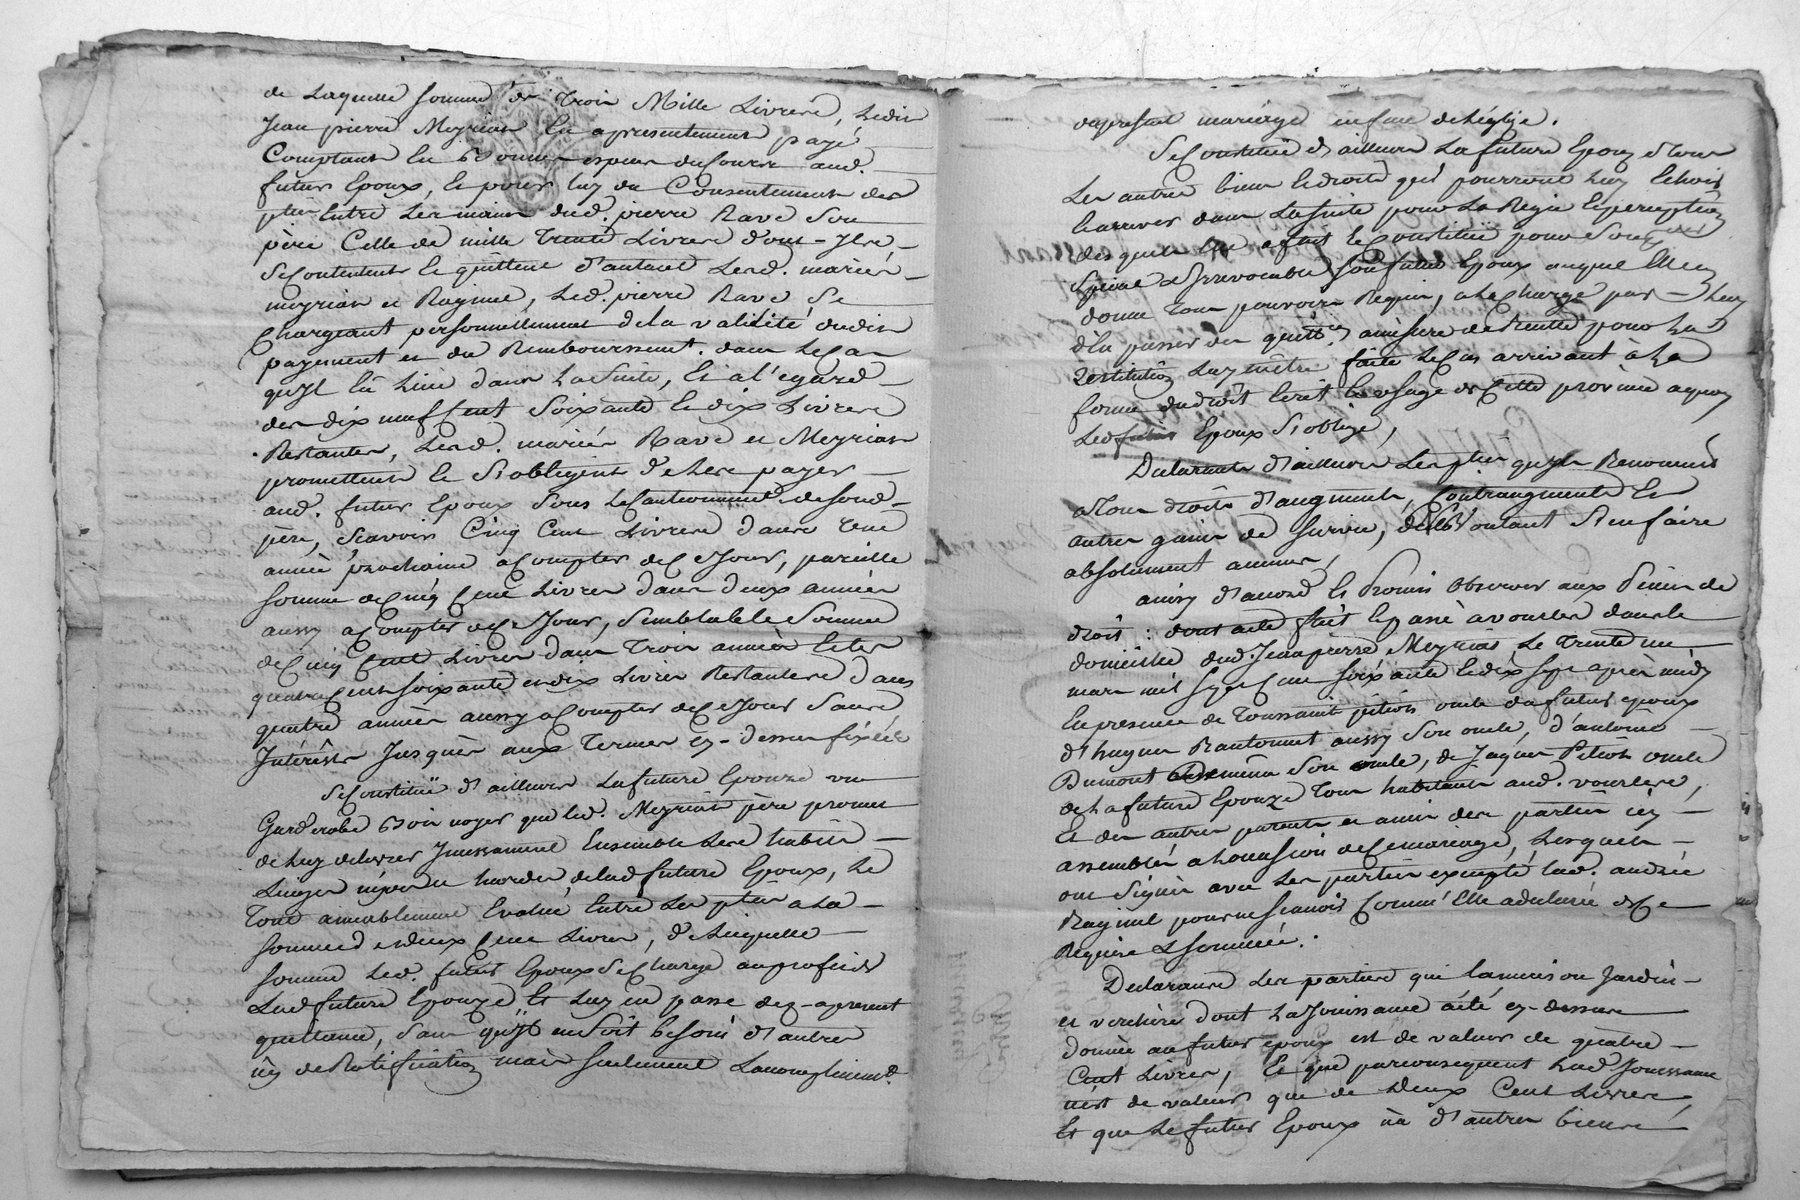 de Laquelle somme de Trois Mille Livres, Ledit
Jean pierre Meyrias En a presentement payé
Comptant En bonnes especes du Cours aud.
futur Epoux, et pour luy du Consentement des
pties Entre Les mains dud. pierre Ravé Son
père Celle de mille Trente Livres dont - Ils
Se Contentent Et quittent d'autant Lesd. mariés
meyrias et Raymel, Led. pierre Ravé Se
Chargeant personnellement de la validité dudit
payement et du Remboursement. dans Le Cas
qu'il Eu Lieu dans La Suite, Et a l'egard
des dix neuf Cent Soixante Et dix Livres
Restantes, Lesd. mariés Ravé et Meyrias
promettent Et S'obligent de Les payer
aud. futur Epoux Sous Le Cautionnemt. de Sond.
père, Scavoir Cinq Cent Livres dans Une
année prochaine a Compter de Ce Jour, pareille
Somme de Cinq Cent Livres dans deux années
aussy a Compter de Ce Jour, Semblable Somme
de Cinq Cent Livres dans Trois années Et Les
quatre Cent Soixante et dix Livres Restantes dans
quatre années aussy a Compter de Ce Jour Sans
Intérêts Jusques aux Termes Cy-dessus fixées
Se Constitue d'ailleurs La future Epouze un
Garderobe bois noyer que led. Meyrias père promet
de Luy delivrer Incessament Ensemble Les habits
Linges nipes et hardes de Lad. future Epouze, Le
Tout amiablement Evalué Entre Les pties a La
Somme de deux Cent Livres, de Laquelle
Somme Led. futur Epoux Se Charge au profit de
Lad. future Epouze Et Luy en passe dez-apresent
quittance, Sans qu'il en Soit besoin d'autre
ny de Ratification mais Seulement L'accomplissemt.
du present mariage en face de L'église.
Se Constitue d'ailleurs La future Epouze Tous
Les autres biens et droits qui pourront Luy Echoir
Et arriver dans La Suite pour La Regie Et perception
desquels Elle a fait Et Constitué pour Son
Special et Irrevocable Son futur Epoux auquel Elle
donne Tous pouvoirs Requis, a La Charge par Luy
d'En passer des quittes. a mesure de Recette pour La
Restitution Luy être faite Le Cas arrivant à La
forme du droit Ecrit Et usage de Cette province a quoy
Led. futur Epoux S'oblige,
Declarant d'ailleurs Les pties qu'ils Renoncent
a Tous droits d'augment, Contraugment Et
autres gains de Survie, ne Voulant S'en faire
absolument aucuns,
ainsy d'accord Et Promis Observer aux Peines de
droit : dont acte fait Et passé a vourles dans le
domicille dud. Jean pierre Meyrias Le Trente un
mars mil Sept Cent Soixante Et dix Sept après midy
En presence de Toussaint pition oncle du futur epoux
d'hugues Rantonnet aussy Son oncle, d'antoine
Dumont Son oncle, de Jaques Pition oncle
de La future Epouze Tous habitants aud. vourles,
Et des autres parents et amis des parties icy
assemblés a L'occasion de Ce mariage, Lesquels
ont Signés avec Les parties excepté Lad. andrée
Raymel pour ne Scavoir Comme Elle a declaré de Ce
Requise et Sommée.
Declarant Les parties que la maison Jardin
et verchère dont La Jouissance a été cy-dessus
donnée au futur epoux est de valeur de quatre
Cent Livres, Et que par consequent Lad. Jouissance
n'est de valeur que de deux Cent Livres,
Et que Le futur Epoux n'a d'autres biens